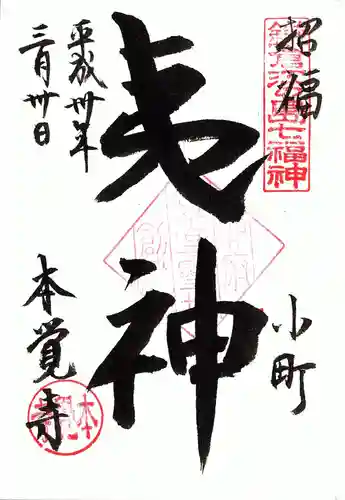 招福
鎌倉江の島七福神
夷神
小町
平成卅年
三月卅日
本覚寺